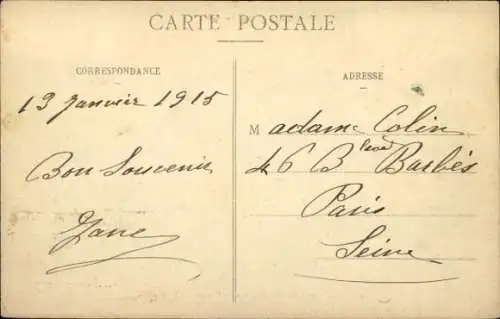 CARTE POSTALE
CORRESPONDANCE
13 Janvier 1915
Bon Souvenir
Jane
ADRESSE
Madame Colin
46 Bd Barbès
Paris
Seine